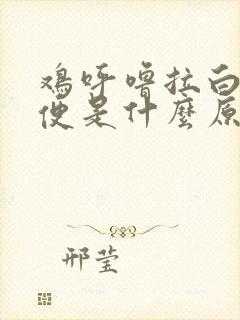 鸡呼噜拉白
便是什麼原
邢莹